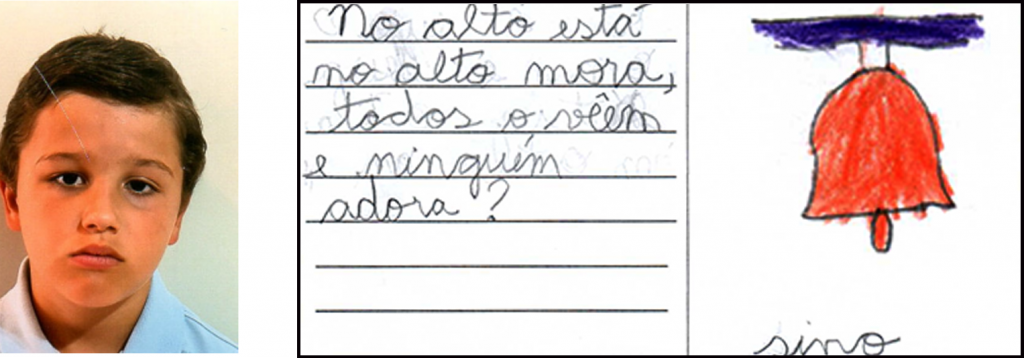 No alto está
no alto mora,
todos o vêem
e ninguém
adora?
sino